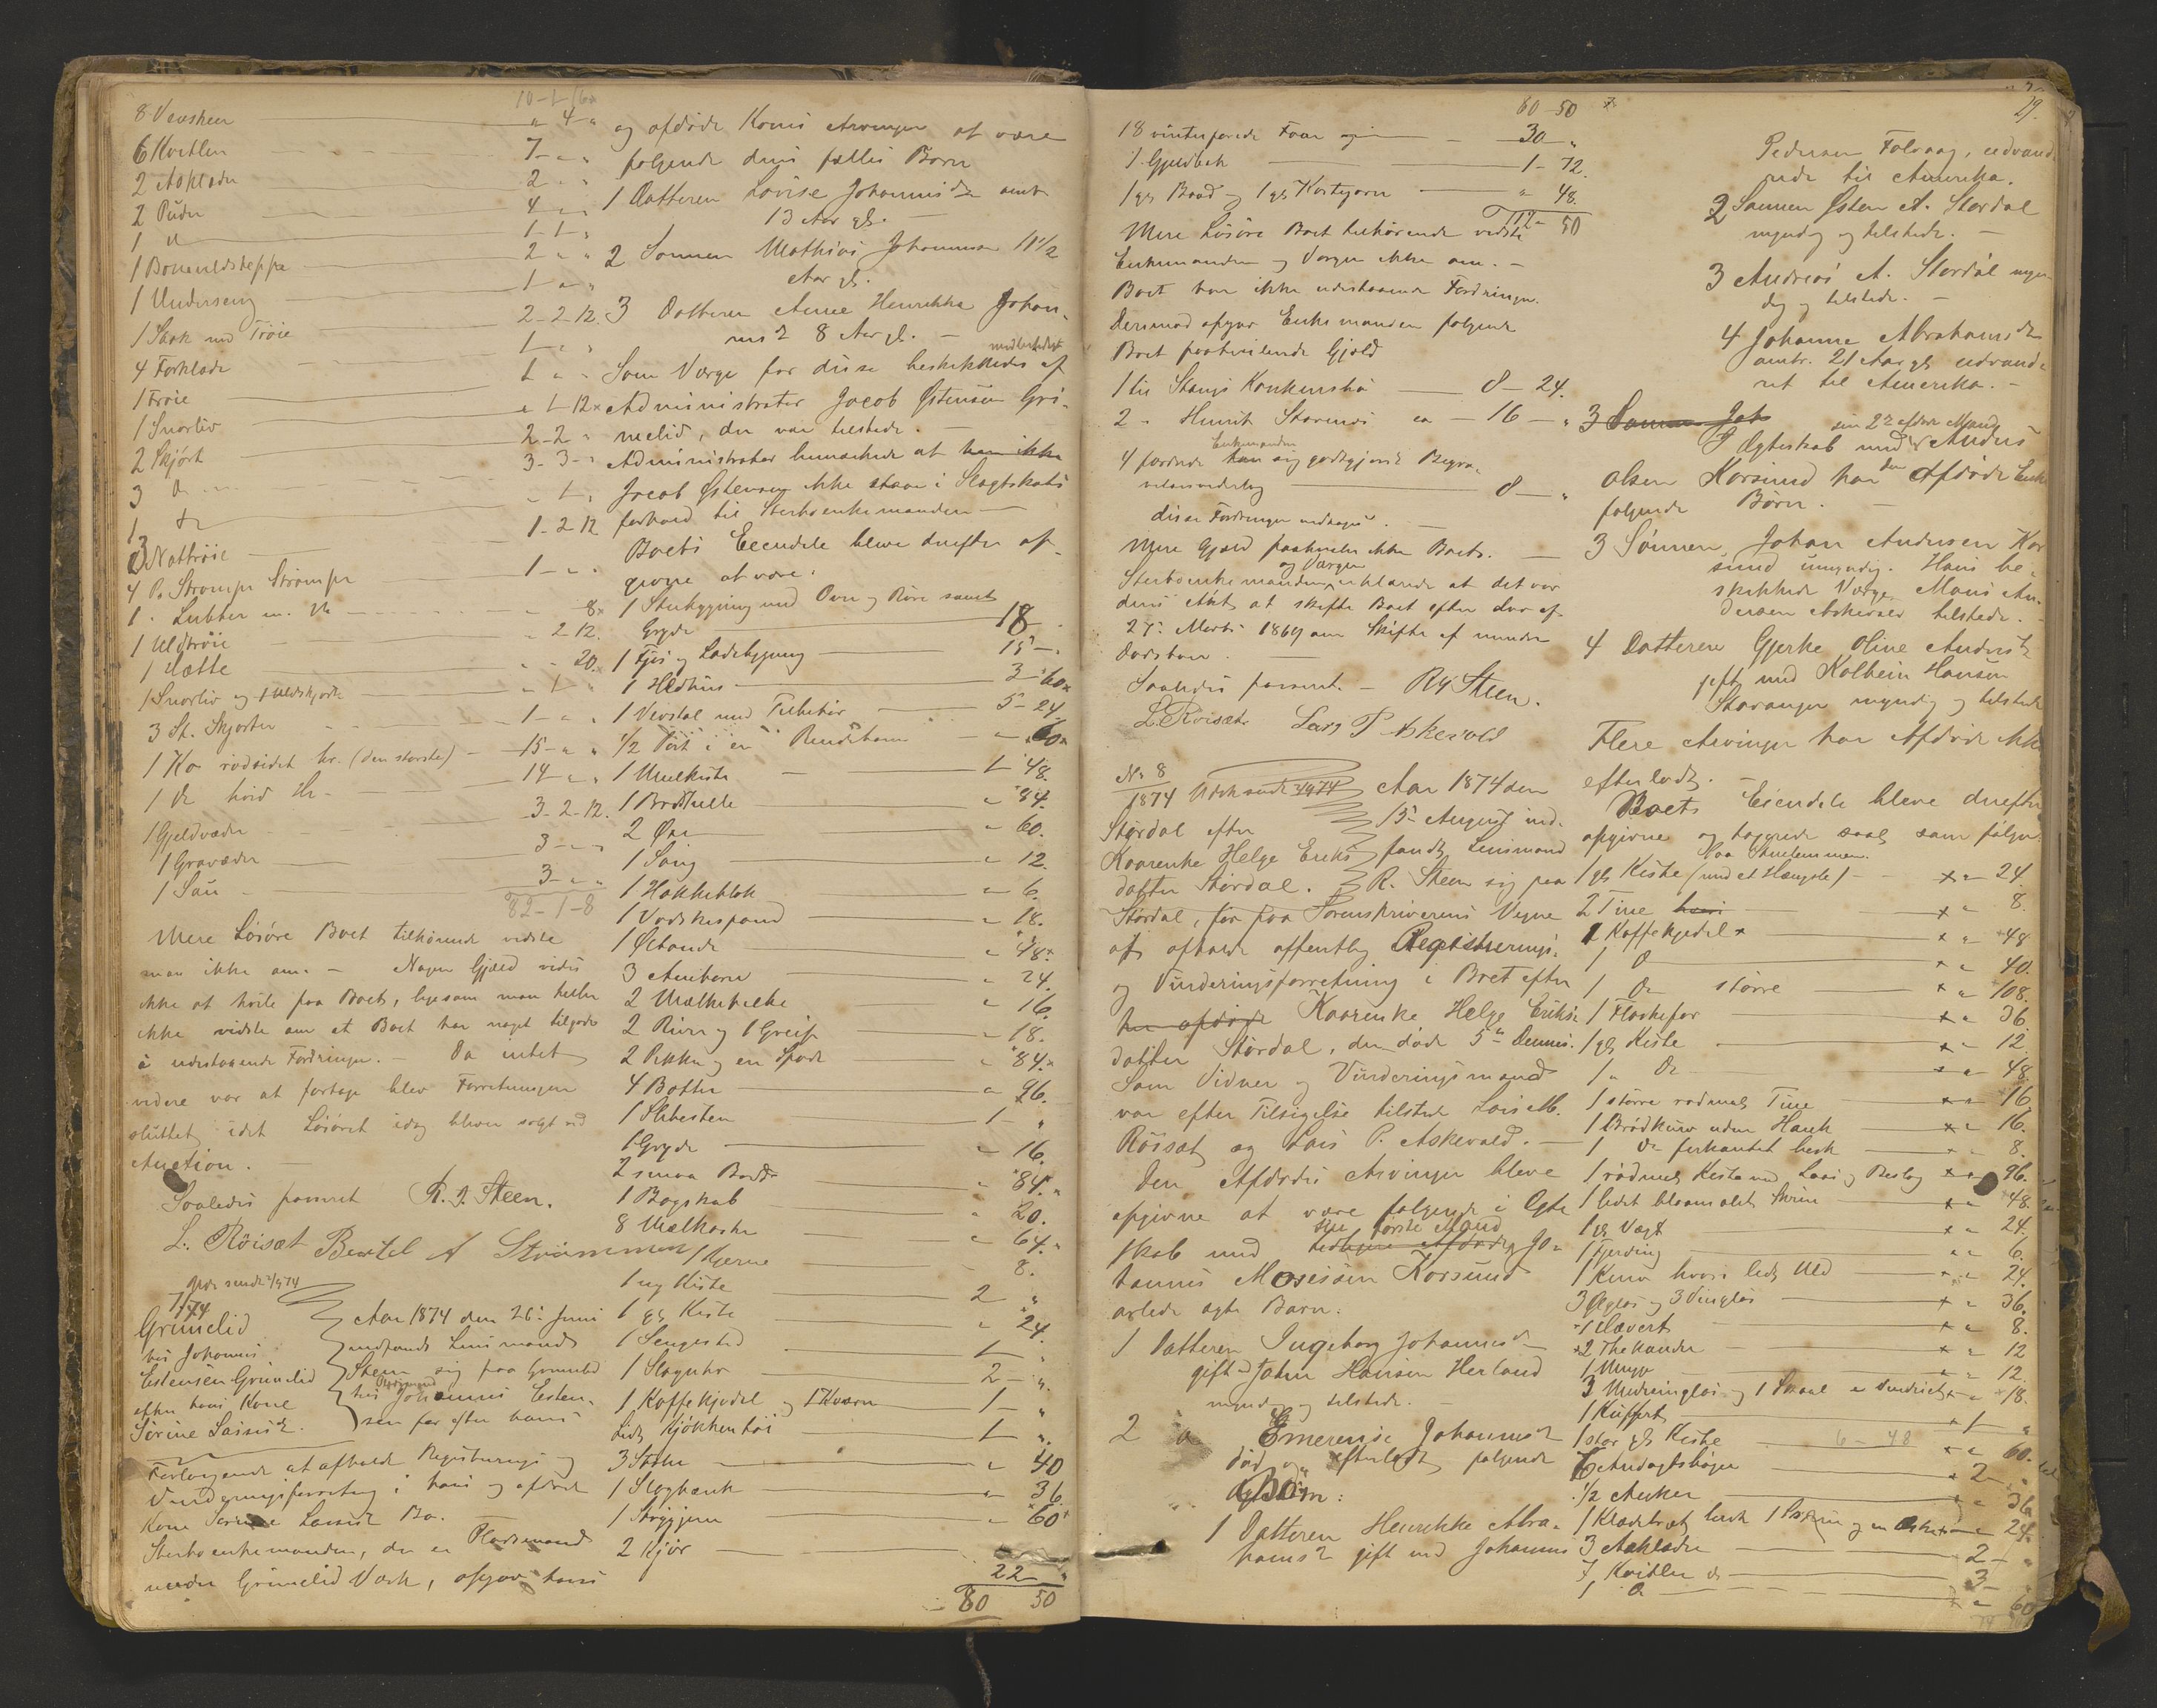 10-1-16
8 Vevskeer " 4 "
6 Kvitler 7 - " "
2 Aaklæder 2 " "
2 Puder 4 " "
1 d 1-1-"
1 Bommuldsteppe 2 " "
1 Underseng 1 " "
1 Stak med Trøie 2-2-12.
4 Forklæde 1 - " "
1 Trøie 1 " "
1 Snorliv " 1-12
2 Skjørt 2-2 "
3 Do 3-3-"
1 do " 1 "
3 Nattrøie 1-2 12
4 P. Strømper 1 - " "
1 " Lubber 8
1 Uldtrøie " 2 12.
1 Hætte " " 20.
1 Snorliv og 1 Uldskjorte " 1 "
3 St. Skjorter 1 - " "
1 Ko rødsidet hr. (den største) 15 - " "
1 do hvid Hr. 14 " "
1 Gjeldvæder 3-2-12.
1 Gravæder 3 - " "
1 Sau 3 - " "
82-1-8
Mere Løsøre Boet tilhørende vidste
man ikke om. - Nogen Gjæld vides
ikke at hvile paa Boet, ligesom man heller
ikke vidste om at Boet har noget tilgode
i udestaaende Fordringer. - Da intet
videre var at foretage blev Forretningen
sluttet, idet Løsøret idag bliver solgt ved
Auction. -
Saaledes passeret R. J. Steen.
L. Röisæt Bertel A Strömmen
7/74
Grimelid
hos Johannes
Estensen Grimelid
efter hans Kone
Sørine Larsd.
Aar 1874 den 26. Juni
indfandt Lensmand
Steen sig paa Grimelid
hos Johannes Esten-
sen for efter hans
Forlangende at afholde Registrerings og
Vurderingsforretning i hans og afdøde
Kone Sørine Larsd. Bo. -
Sterboenkemanden, der er Pladsemand
under Grimelid Vark, opgav hans
og afdøde Kones Arvinger at være
følgende deres fælles Børn
1 Datteren Lovise Johannesd. omtr
13 Aar gl. -
2 Sønnen Mathias Johannesen 11 1/2
Aar gl.
3 Datteren Anne Henrikka Johan-
nesd 8 Aar gl. -
Som Værge for disse beskikkedes af
Administrator Jacob Østensen Gri-
melid, der var tilstede. -
Administrator bemærkede at han ikke
Jacob Østensen ikke staar i Slægtskabs
forhold til Sterboenkemanden -
Boets Eiendele bleve derefter op-
givne at være:
1 Stuebygning med Ovn og Rør samt
Gryde 18
1 Fjøs og Ladebygning 15 - "
1 Ildhus 3 - 60
1 Vevstol med Tilbehør 5 - 24
1/2 Part i en 60
1 Meelkiste 1 48.
1 Brødhelle " 84.
2 Øxe " 60.
1 Saug " 12.
1 Hakkeblok " 6.
1 Vadskespand " 18.
1 Øltande " 48.
3 Ambarer " 24.
2 Mælkebutte " 16.
2 River og 1 Greip " 18.
2 Hakke og en Spade " 84.
4 Bøtter " 96.
1 Slibesten 1 - "
1 Gryde " 16.
2 smaa Borde " 84.
1 Bogskab " 20.
8 Mælkeske " 64.
1 Kjerne 8.
1 ny Kiste 2 "
1 gl Kiste " 24.
1 Sengested 1 "
1 Slaguhr 2 - "
1 Kaffekjedel og 1 Kværn 1 - "
lidt Kjøkkentøi 1 "
3 Stole " 40
1 Slagbænk " 36.
1 Strygjern " 60
2 Kjør 22 - "
80 50
80-50
18 vinterforede Faar 30 - "
1 Gjeldbuk 1 - 72.
1 gl Baad og 1 gl Kastegarn " 48.
112 - 50
Mere Løsøre Boet tilhørende vidste
Enkemanden og Værgen ikke om. -
Boet har ikke udestaaende Fordringer.
Derimod opgav Enkemanden følgende
Boet paahvilende Gjæld
1 til Stangs Konkursbo 8 - 24.
2 " Henrik Storenes ca - 16 - "
Enkemanden
4 fordrede han sig godtgjort Begra-
velsesudlæg 8 - "
disse Fordringer vedtages. -
Mere Gjæld paahviler ikke Boet. -
og Værgen
Sterboenkemanden erklærede at det var
deres Agt at skifte Boet efter Lov af
27. Marts 1869 om Skifte af mindre
Dødsboer. -
Saaledes passeret. - R J Steen.
L Röisæt Lars P Askevold
No 8
1874
Stordal efter
Kaarenke Helge Eriks
datter Stordal.
Aar 1874 den
15. August ind-
fandt Lensmand
R. Steen sig paa
Stordal, for paa Sorenskriverens Vegne
at afholde offentlig Registrerings-
og Vurderingsforretning i Boet efter
den afdøde Kaarenke Helge Eriks-
datter Stordal, der døde 5te Dennes.
Som Vidner og Vurderingsmænd
var efter Tilsigelse tilstede Lars M.
Röisæt og Lars P. Askevold. -
Den Afdødes Arvinger bleve
opgivne at være følgende i Ægte
skab med sin første Mand Jo-
hannes Mosesson Korssund
avlede ægte Børn:
1 Datteren Ingeborg Johannesd
gift - Johan Hansen Herland
myndig og tilstede. -
2 do Emerense Johannesd
død og efterladt følgende
Børn:
1 Datteren Henrikke Abra-
hamsd gift med Johannes
29.
Pedersen Folvaag, udvand-
rede til Amerika.
2 Sønnen Østen A. Stordal
myndig og tilstede. -
3 Andreas A. Stordal myn
dig og tilstede. -
4 Johanne Abrahamsd
omtr. 21 Aar gl udvand-
ret til Amerika. -
3 Sønnen Joh
sin 2de afdøde Mand
I Ægteskab med Anders
Olsen Korssund har den Afdøde Enke
følgende Børn. -
3 Sønnen Johan Andersen Kor
sund umyndig. Hans be-
skikkede Værge Mons An-
dersen Askevold tilstede. -
4 Datteren Gjerke Oline Andersd
gift med Kolbein Hansen
Stavanger myndig og tilstede
Flere Arvinger har Afdøde ikke
efterladt. -
Boets Eiendele bleve derefter
opgivne og taxerede saal som følger
Paa Stuelemmen.
1 gl Kiste (med et Hængsle) " 24
2 Tine " 8.
1 Kaffekjedel " 48
1 D " 40.
1 Do større " 108.
1 Flaskefor " 36.
1 gl Kiste " 12
1 " Do " 48.
1 større rødmalt Tine " 16
1 Brødkurv uden Hank " 16.
1 do firkantet " 8.
1 rødmalt Kiste med Laas og Beslag " 96.
1 lidet blaamalet Skrin " 48.
1 gl Vægt " 24.
1 Fjerding " 6.
1 Kurv hvori lidt Uld " 24.
3 Ølglas og 3 Vinglas " 36.
" 8.
2 Thekander " 12
1 Mugge " 12.
3 Medicinglas og 1 Skaal " 18.
1 Kuffert 1 "
1 stor gl Kiste " 60.
6 - 48
6 Andagtsbøger 2 - "
1/2 Anker " 36
1 Klædebræt " 24
3 Aaklæder 2 - "
7 Kvitler 3 -
1 do " 60